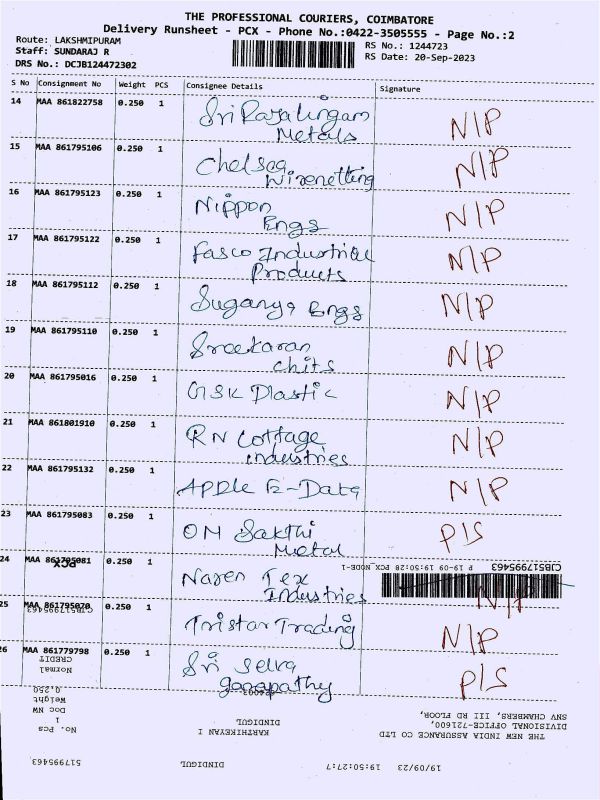 THE PROFESSIONAL COURIERS, COIMBATORE
Delivery Runsheet - PCX - Phone No.:0422-3505555 - Page No.:2
Route: LAKSHMIPURAM
Staff: SUNDARAJ R
DRS No.: DCJB124472302
RS No.: 1244723
RS Date: 20-Sep-2023
S No Consignment No Weight PCS Consignee Details Signature
14 MAA 861822758 0.250 1 Sri Rajalingam N/P
Metals
15 MAA 861795106 0.250 1 Chelsea N/P
Wirenetting
16 MAA 861795123 0.250 1 Nippon N/P
Engs
17 MAA 861795122 0.250 1 Fasco Industrial N/P
Products
18 MAA 861795112 0.250 1 Suganya Engs N/P
19 MAA 861795110 0.250 1 Sreekaran N/P
Chits
20 MAA 861795016 0.250 1 GSK Plastic N/P
21 MAA 861801910 0.250 1 RN Cottage N/P
industries
22 MAA 861795132 0.250 1 Apple E-Data N/P
23 MAA 861795083 0.250 1 OM Sakthi P/S
Metal
CJB517995463 P 19-09 19:50:28 PCX_NODE-1
24 MAA 861795081 0.250 1 Naren Tex N/P
PCX
Industries
25 MAA 861795070 0.250 1 Tristar Trading N/P
CJB517995463
26 MAA 861779798 0.250 1 Sri Selva P/S
ganapathy
Normal
CREDIT
0.250
Weight
Doc NW
1
No. Pcs
DINDIGUL
KARTHIKEYAN I
SNV CHAMBERS, III RD FLOOR,
DIVISIONAL OFFICE-721600,
THE NEW INDIA ASSURANCE CO LTD
517995463 DINDIGUL 19:50:27:7 19/09/23